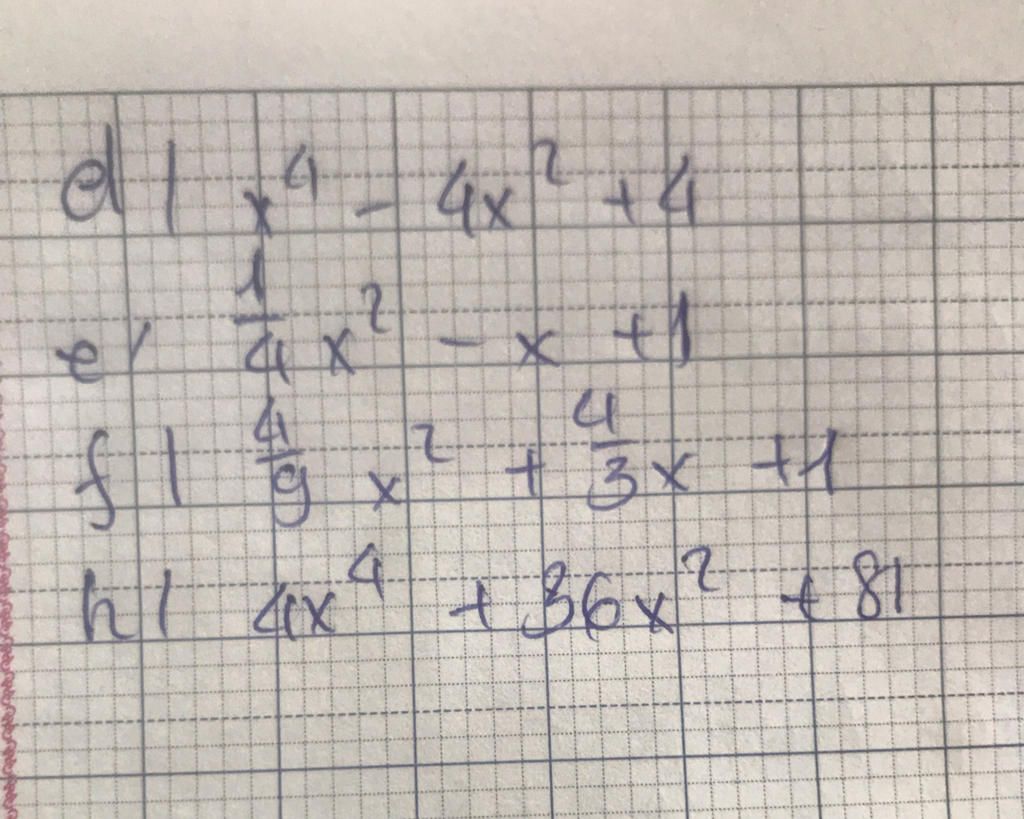 d| x⁴ - 4x² + 4
e/ 1/4 x² - x + 1
f| 4/9 x² + 4/3 x + 1
h| 4x⁴ + 36x² + 81